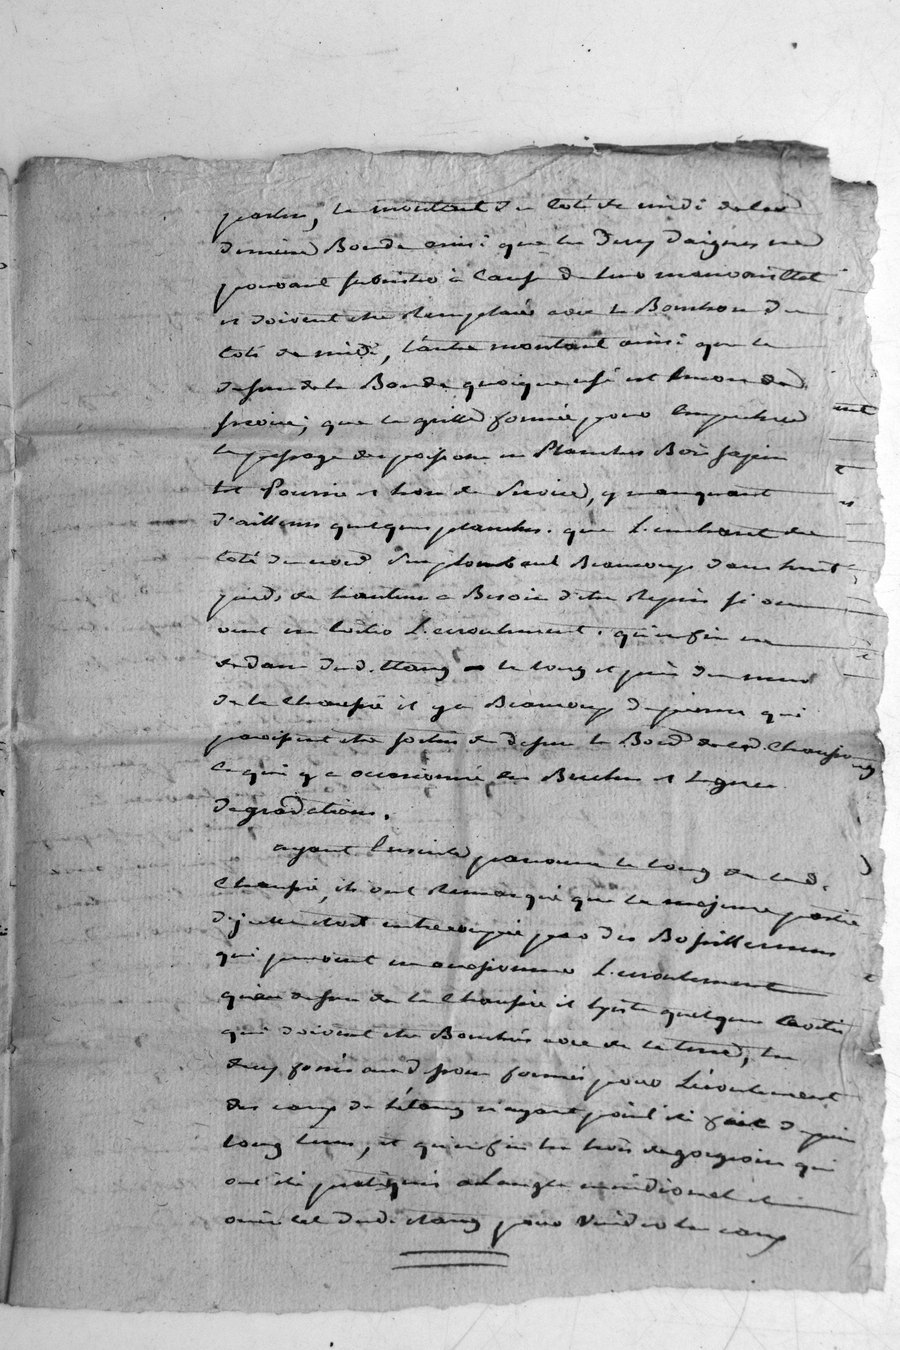 portes, le montant du coté de midi de la
derniere Bonde ainsi que les deux daigues ne
pouvant subsister à cause de leur mauvais Etat
et doivent etre Remplacés avec le Bouchon du
coté de midi, l'autre montant ainsi que le
dessus de la Bonde quoique usé est encore de
service; que la grille formée pour empecher
le passage des poissons en Planches Bois sapin
est Pourrie et hors de service, y manquant
d'ailleurs quelques planches. que L. du
coté du nord surplombant Beaucoup dans huit
pieds de hauteur a Besoin d'etre Repris si on
veut en eviter L'ecroulement. qu'enfin en
dedans dud. Etang le long et près du mur
de la Chaussée il y a Beaucoup de pierres qui
paroissent etre sorties de dessus le Bord de lad. Chaussée
ce qui y a occasionné des Breches et legeres
degradations.
ayant Ensuite parcouru le long de lad.
Chaussée, ils ont Remarqué que la majeure partie
d'icelle etoit entrecoupée par des
qui peuvent en occasionner L'ecroulement
qu'au dessus de la Chaussée il existe quelques cavités
qui doivent etre Bouchées avec de la terre, les
deux fossés au nord formés pour L'ecoulement
des eaux de l'étang n'ayant point été fait depuis
long tems, et qu'enfin les trois degorgeoirs qui
ont été pratiqués a Langle meridional et
oriental dud. etang pour Vuider les eaux